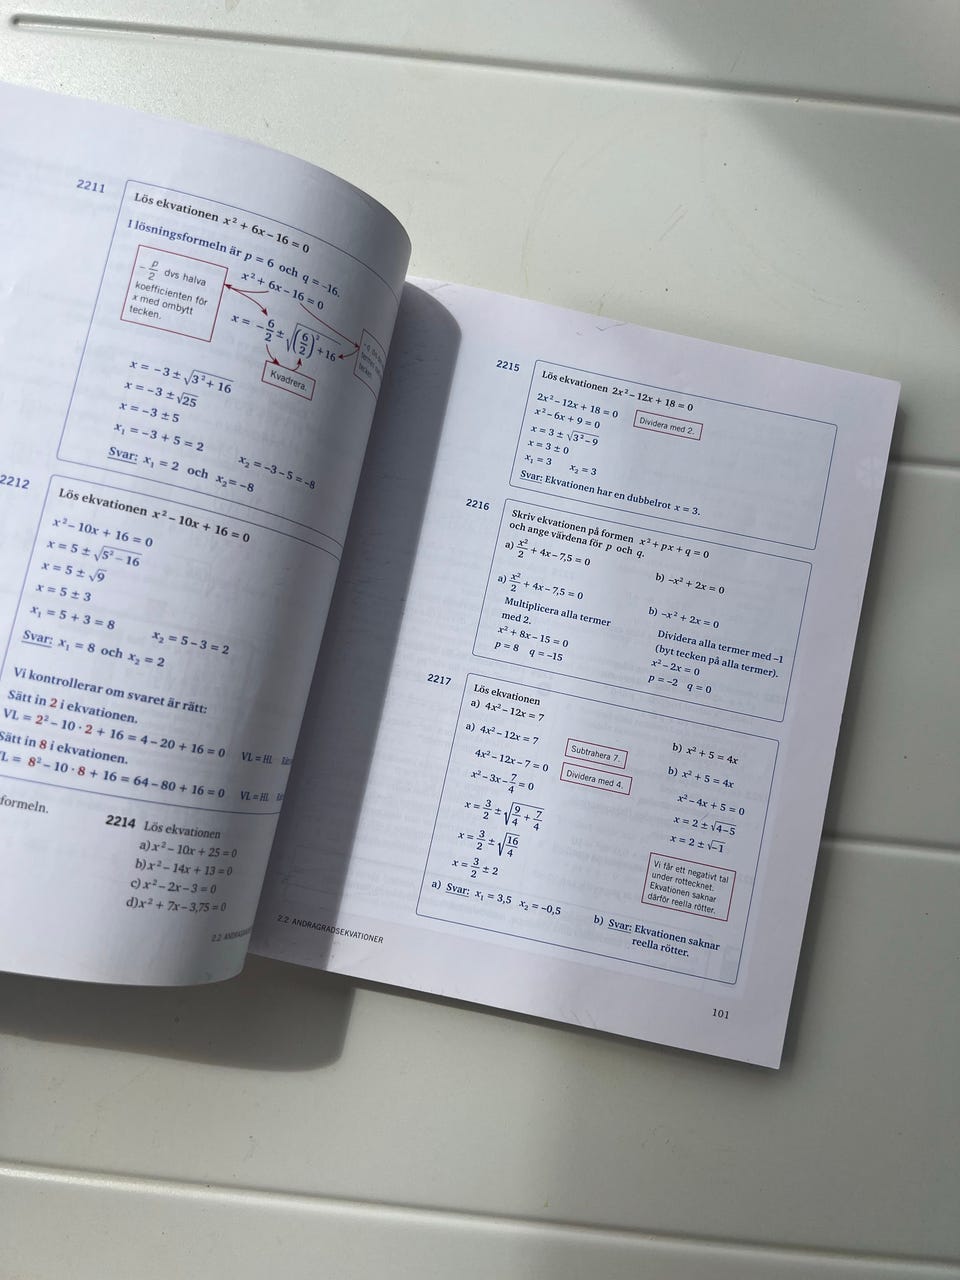 2211
Lös ekvationen x² + 6x – 16 = 0
I lösningsformeln är p = 6 och q = –16.
x² + 6x – 16 = 0
– p/2 dvs halva
koefficienten för
x med ombytt
tecken.
x = – 6/2 ± √((6/2)² + 16)
Kvadrera.
x = –3 ± √(3² + 16)
x = –3 ± √25
x = –3 ± 5
x₁ = –3 + 5 = 2 x₂ = –3 – 5 = –8
Svar: x₁ = 2 och x₂ = –8
2212
Lös ekvationen x² – 10x + 16 = 0
x² – 10x + 16 = 0
x = 5 ± √(5² – 16)
x = 5 ± √9
x = 5 ± 3
x₁ = 5 + 3 = 8 x₂ = 5 – 3 = 2
Svar: x₁ = 8 och x₂ = 2
Vi kontrollerar om svaret är rätt:
Sätt in 2 i ekvationen.
VL = 2² – 10 · 2 + 16 = 4 – 20 + 16 = 0 VL = HL
Sätt in 8 i ekvationen.
VL = 8² – 10 · 8 + 16 = 64 – 80 + 16 = 0 VL = HL
formeln.
2214 Lös ekvationen
a) x² – 10x + 25 = 0
b) x² – 14x + 13 = 0
c) x² – 2x – 3 = 0
d) x² + 7x – 3,75 = 0
2.2
2215
Lös ekvationen 2x² – 12x + 18 = 0
2x² – 12x + 18 = 0 Dividera med 2.
x² – 6x + 9 = 0
x = 3 ± √(3² – 9)
x = 3 ± 0
x₁ = 3 x₂ = 3
Svar: Ekvationen har en dubbelrot x = 3.
2216
Skriv ekvationen på formen x² + px + q = 0
och ange värdena för p och q.
a) x²/2 + 4x – 7,5 = 0 b) –x² + 2x = 0
a) x²/2 + 4x – 7,5 = 0
Multiplicera alla termer
med 2.
x² + 8x – 15 = 0
p = 8 q = –15
b) –x² + 2x = 0
Dividera alla termer med –1
(byt tecken på alla termer).
x² – 2x = 0
p = –2 q = 0
2217
Lös ekvationen
a) 4x² – 12x = 7 b) x² + 5 = 4x
a) 4x² – 12x = 7 Subtrahera 7.
4x² – 12x – 7 = 0 Dividera med 4.
x² – 3x – 7/4 = 0
x = 3/2 ± √(9/4 + 7/4)
x = 3/2 ± √(16/4)
x = 3/2 ± 2
a) Svar: x₁ = 3,5 x₂ = –0,5
b) x² + 5 = 4x
x² – 4x + 5 = 0
x = 2 ± √(4–5)
x = 2 ± √–1
Vi får ett negativt tal
under rottecknet.
Ekvationen saknar
därför reella rötter.
b) Svar: Ekvationen saknar
reella rötter.
2.2 ANDRAGRADSEKVATIONER
101